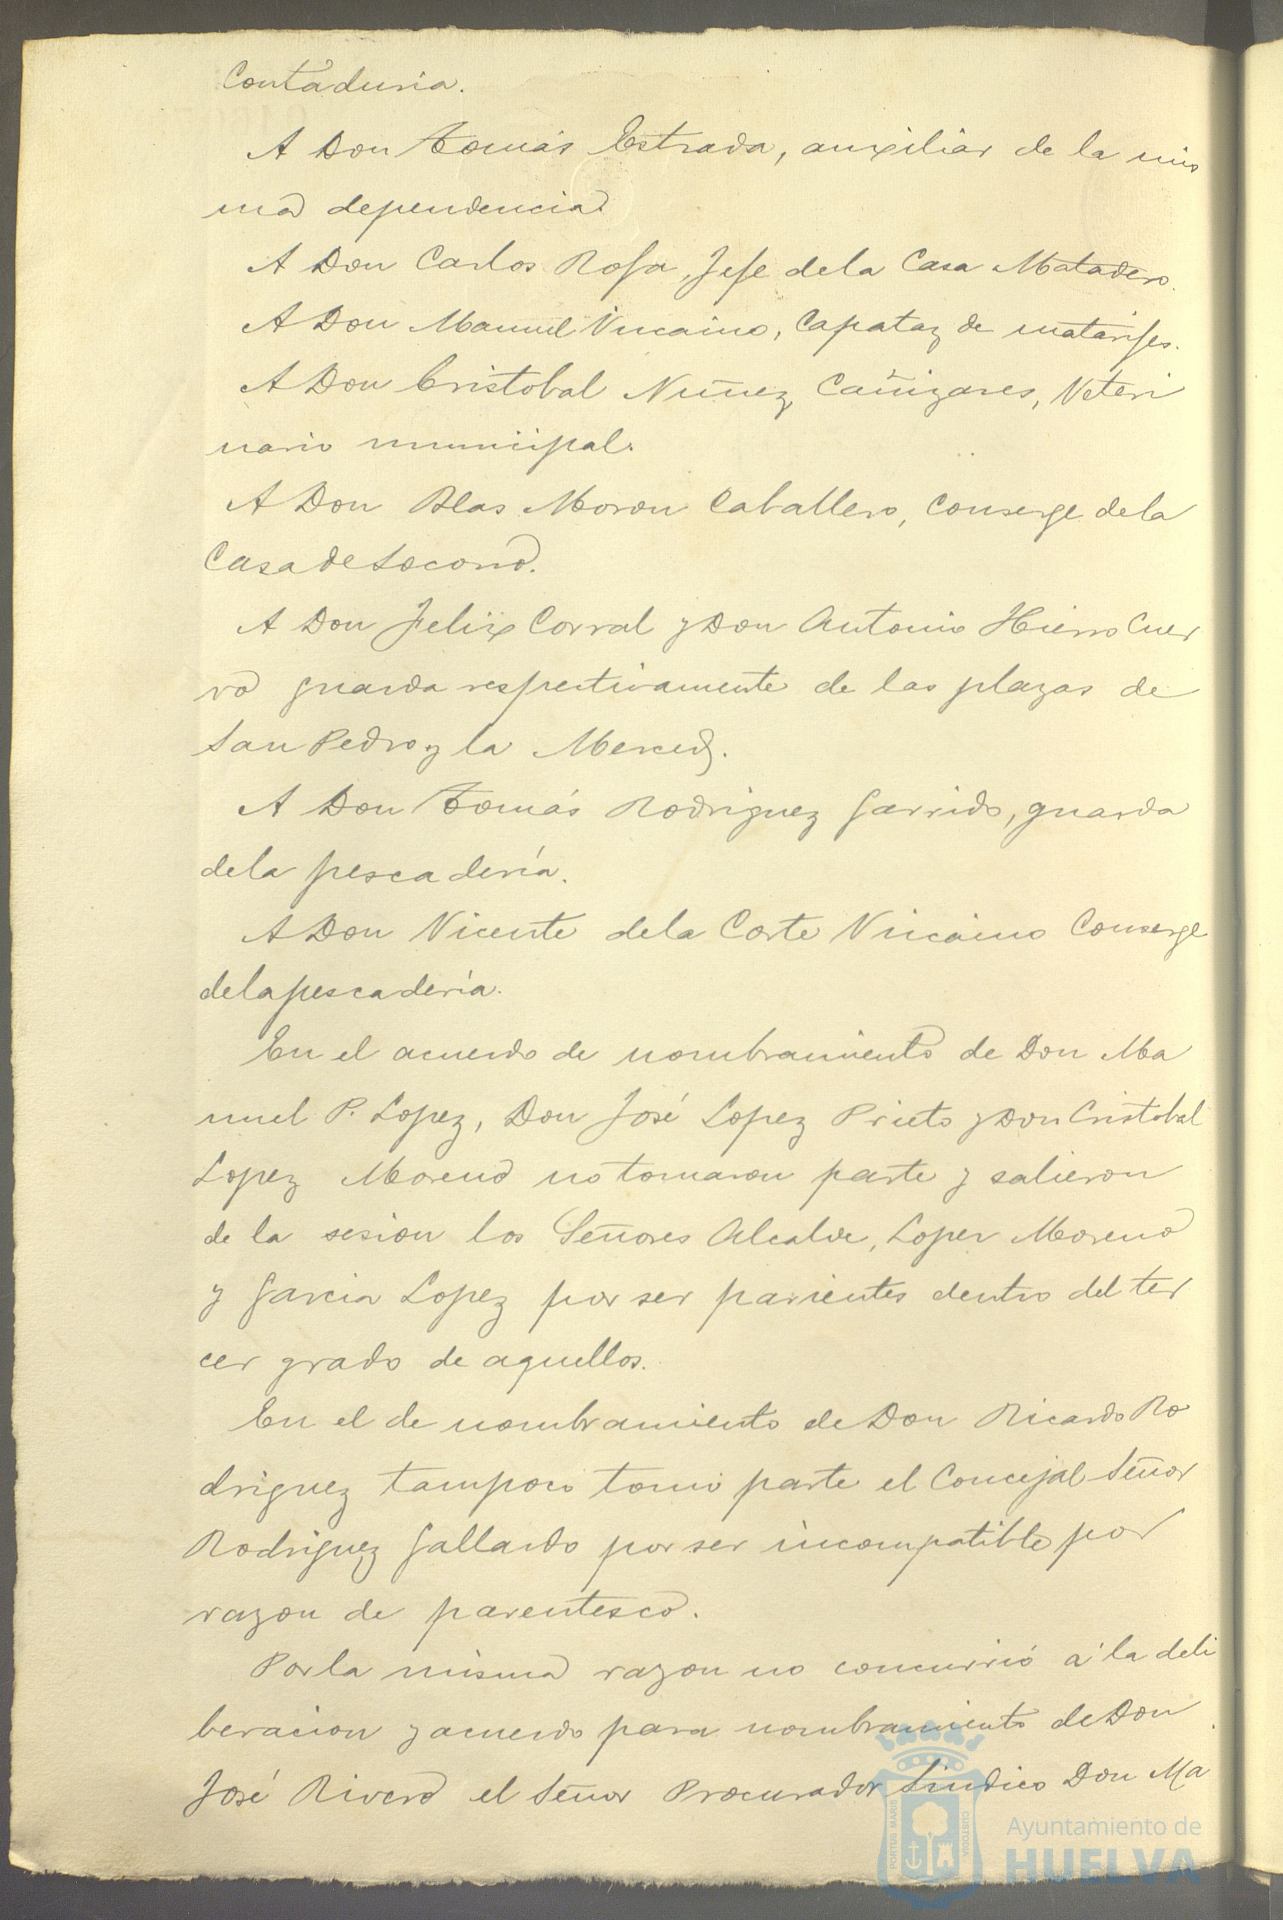 Contaduria.
A Don Tomás Estrada, auxiliar de la mis
ma dependencia.
A Don Carlos Rosa, Jefe de la Casa Matadero.
A Don Manuel Vizcaino, Capataz de matarifes.
A Don Cristobal Nuñez Cañizares, Veteri
nario municipal.
A Don Blas Moron Caballero, Conserge de la
Casa de Socorro.
A Don Felix Corral y Don Antonio Hierro Cuer
vo guarda respectivamente de las plazas de
San Pedro y la Merced.
A Don Tomás Rodriguez Garrido, guarda
de la pescadería.
A Don Vicente de la Corte Vizcaino Conserge
de la pescadería.
En el acuerdo de nombramiento de Don Ma
nuel P. Lopez, Don José Lopez Prieto y Don Cristobal
Lopez Moreno no tomaron parte y salieron
de la sesion los Señores Alcalde, Lopez Moreno
y Garcia Lopez por ser parientes dentro del ter
cer grado de aquellos.
En el de nombramiento de Don Ricardo Ro
driguez tampoco tomó parte el Concejal Señor
Rodriguez Gallardo por ser incompatible por
razon de parentesco.
Por la misma razon no concurrió á la deli
beracion y acuerdo para nombramiento de Don
José Rivero el Señor Procurador Síndico Don Ma
PORTUS MARIS CUSTODIA
Ayuntamiento de
HUELVA